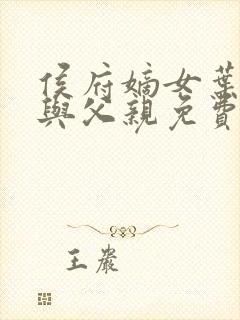 侯府嫡女葉
與父親免費
王巖